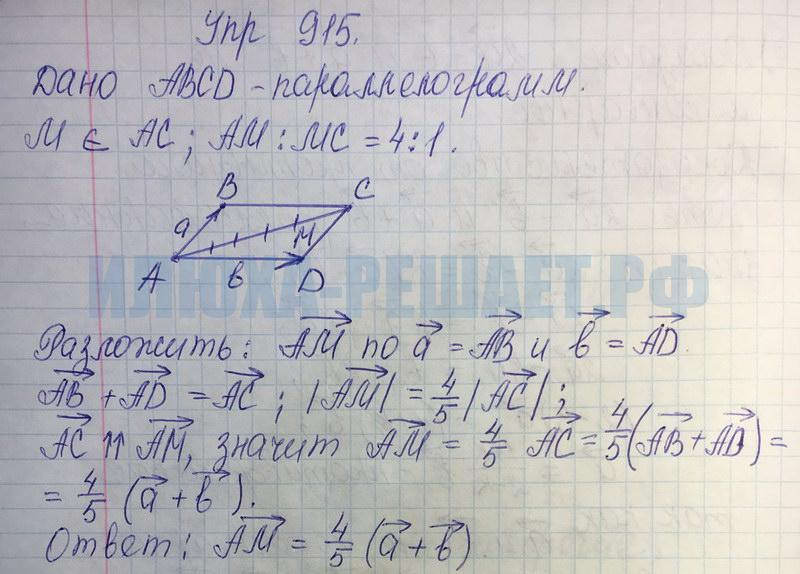 Упр 915.
Дано ABCD - параллелограмм.
M ∈ AC; AM : MC = 4 : 1.
B C
a M
A в D
ИЛЮХА-РЕШАЕТ.РФ
Разложить: AM⃗ по a⃗ = AB⃗ и в⃗ = AD⃗.
AB⃗ + AD⃗ = AC⃗; |AM⃗| = 4/5 |AC⃗|;
AC⃗ ⇈ AM⃗, значит AM⃗ = 4/5 AC⃗ = 4/5 (AB⃗ + AD⃗) =
= 4/5 (a⃗ + в⃗).
Ответ: AM⃗ = 4/5 (a⃗ + в⃗)